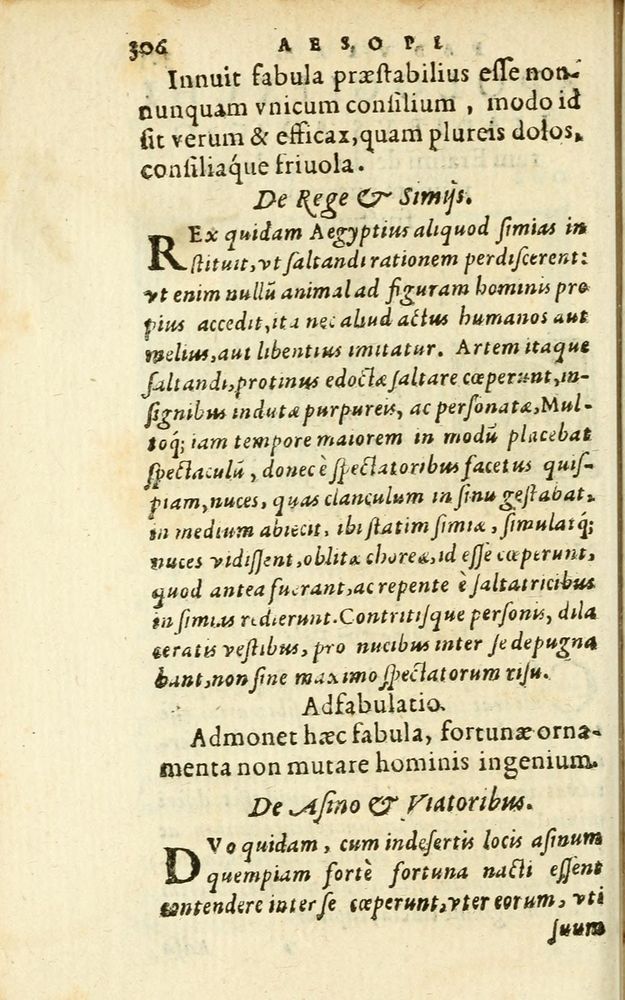 306 AESOPI
Innuit fabula præstabilius esse non-
nunquam vnicum consilium, modo id
sit verum & efficax, quam plureis dolos,
consiliáque friuola.
De Rege & Simijs.
REx quidam Aegyptius aliquod simias in
stituit, vt saltandi rationem perdiscerent:
vt enim nullũ animal ad figuram hominis pro
pius accedit, ita nec aliud actus humanos aut
melius, aut libentius imitatur. Artem itaque
saltandi, protinus edoctæ saltare cœperunt, in-
signibus indutæ purpureis, ac personatæ, Mul-
toq́; iam tempore maiorem in modũ placebat
spectaculũ, donec è spectatoribus facetus quis-
piam, nuces, quas clanculum in sinu gestabat,
in medium abiecit, ibi statim simiæ, simulatq́;
nuces vidissent, oblitæ choreæ, id esse cœperunt,
quod antea fuerant, ac repente è saltatricibus
in simias redierunt. Contritisque personis, dila
ceratis vestibus, pro nucibus inter se depugna
bant, non sine maximo spectatorum risu.
Adfabulatio.
Admonet hæc fabula, fortunæ orna-
menta non mutare hominis ingenium.
De Asino & Viatoribus.
DVo quidam, cum in desertis locis asinum
quempiam fortè fortuna nacti essent
contendere inter se cœperunt, vter eorum, vti
suum